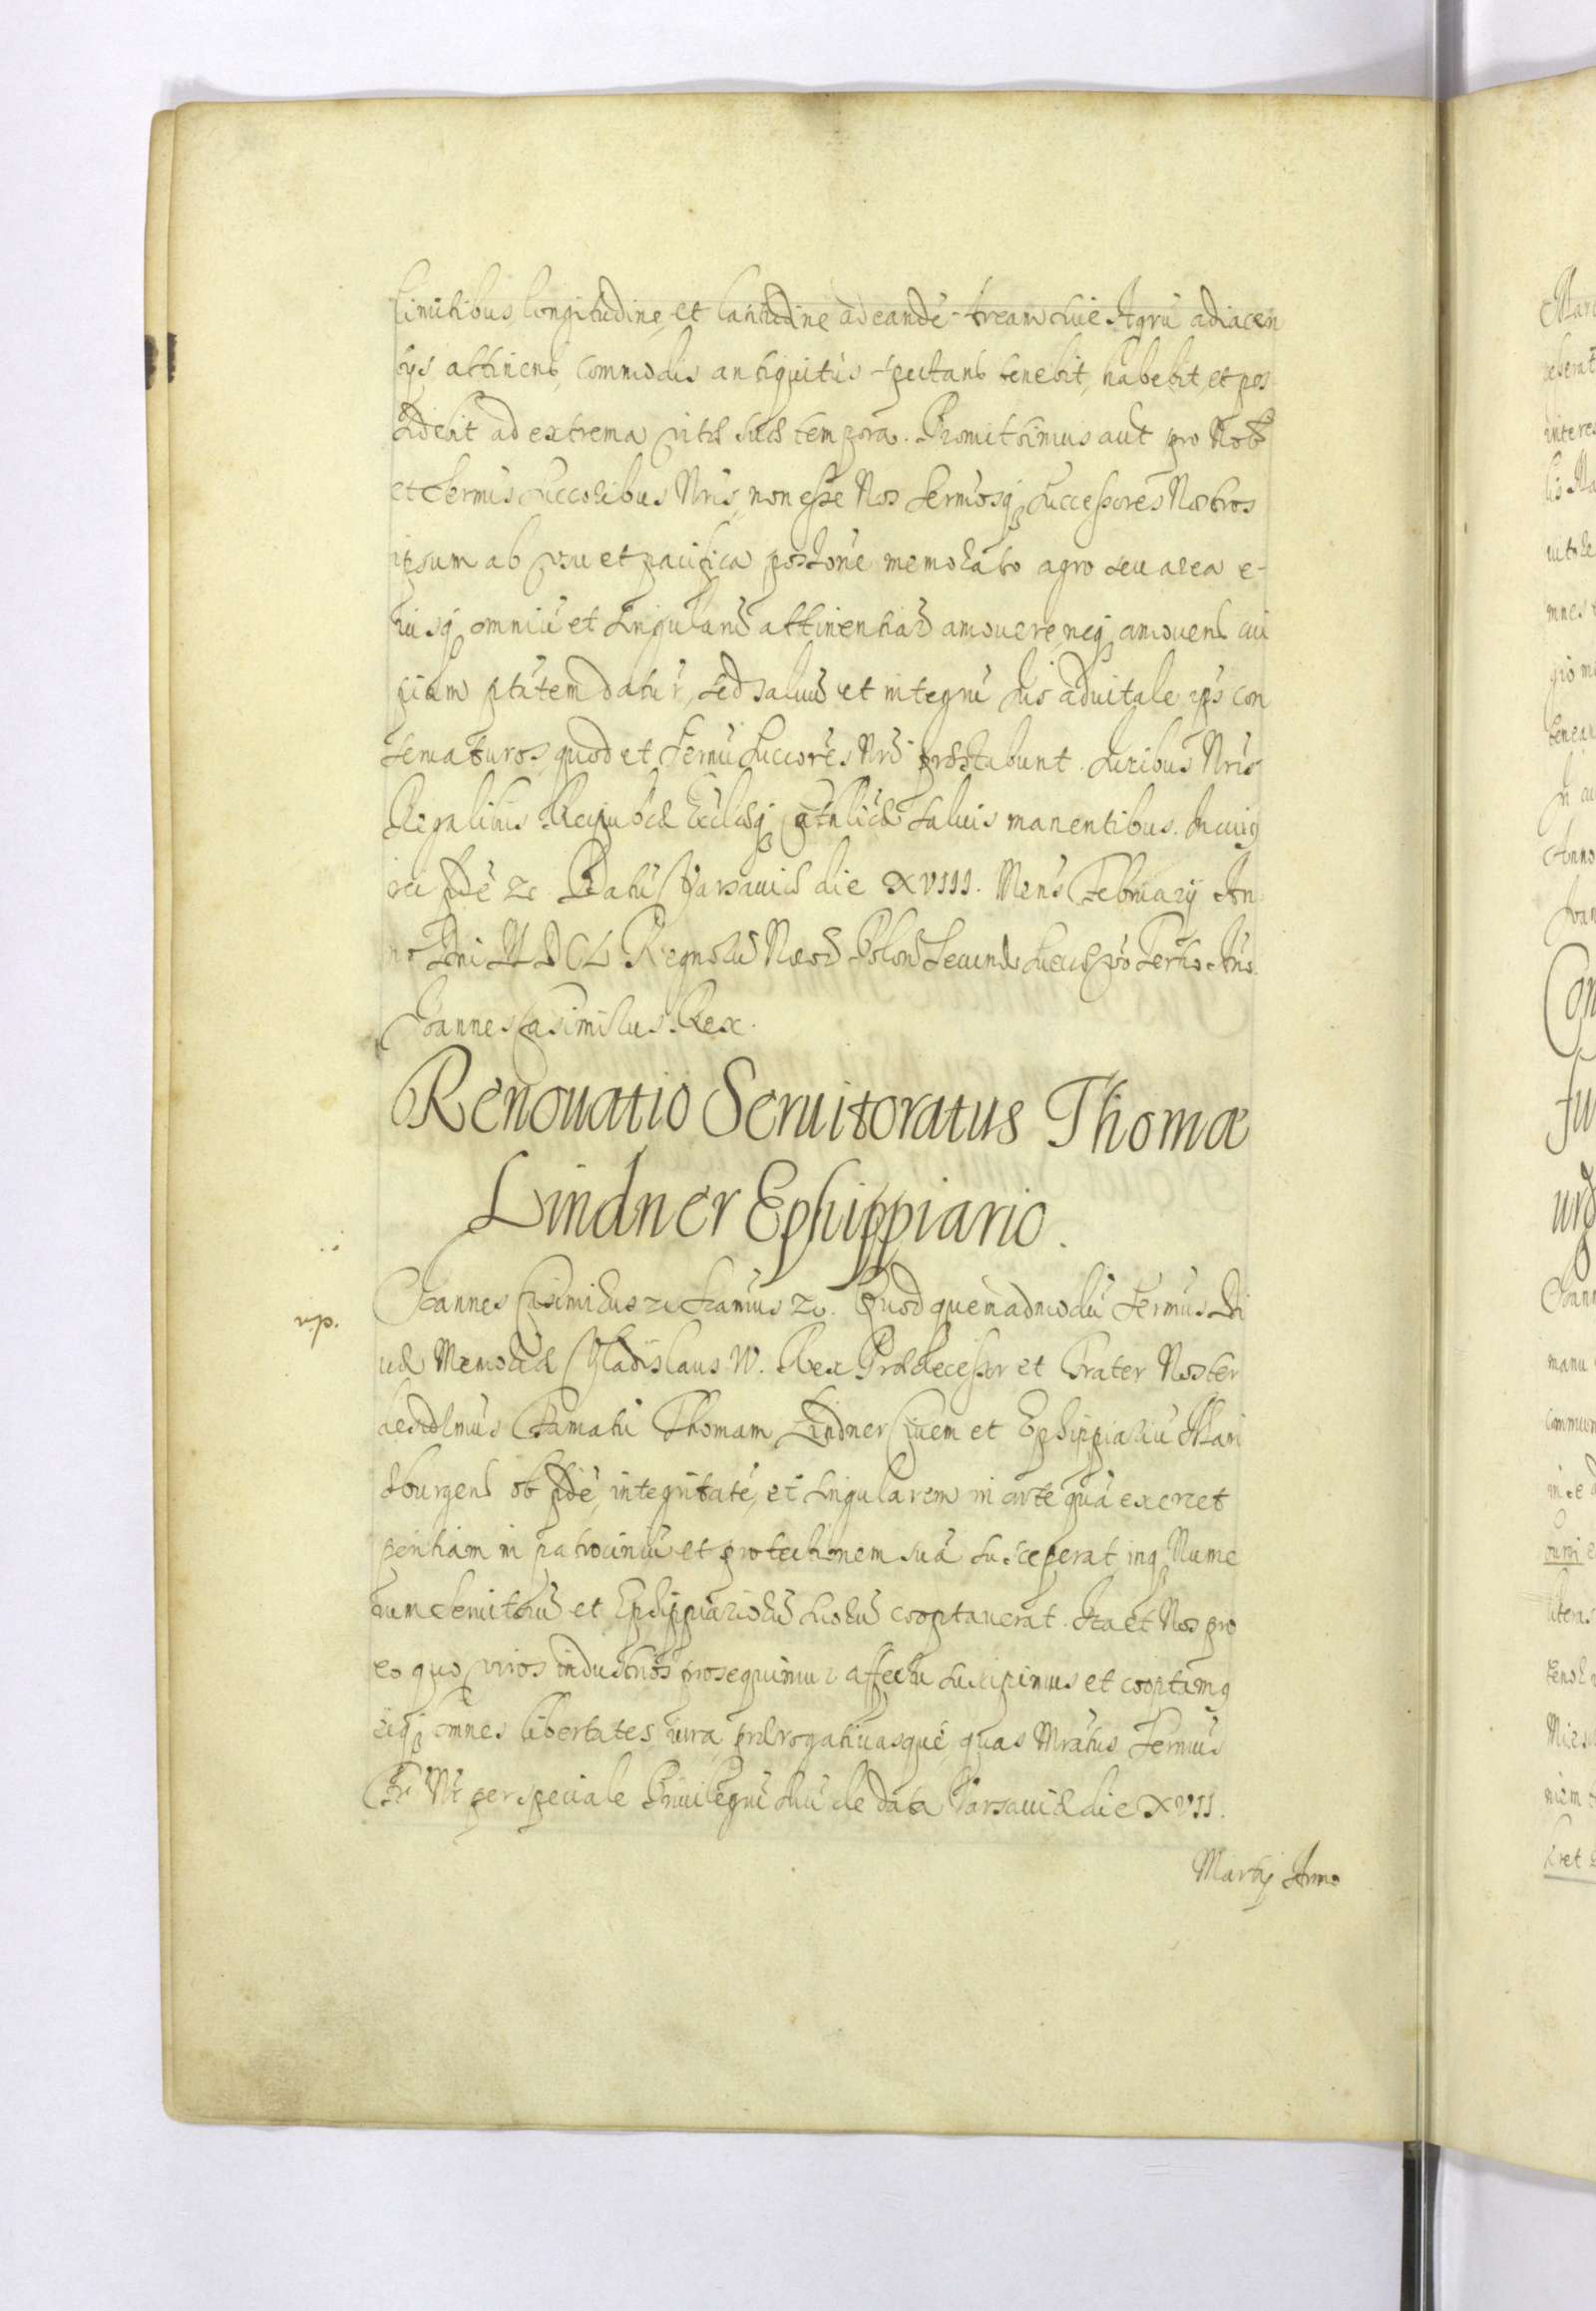 limitibus, longitudine, et latitudine ad eandē Aream siue Agrū adiacen
tys attinent, commodis antiquitus spectant tenebit, habebit, et pos
sidebit ad extrema vitæ suæ tempora. Promittimus aut pro Nob
et Sermis Succoribus Nris, non esse Nos Sermosq3 Successores Nostros
ipsum ab vsu et pacifica possione memorato agro seu area e-
iusq3 omniū et singularū attinentiarū amouere, neq3 amouend cui
piam ptātem daturos, sed saluū et integrū Ius aduitale ipsi con
seruaturos, quod et Sermi Succores Nri præstabunt. Iuribus Nris
Regalibus Reipubcæ Ecclæq3 Cathlicæ saluis manentibus. In cuig
rei fidē 2c Datū Varsauiæ die XVIII. Mens February An
no Dni MDCL Regnorū Nrorū Polon Secundo Sueciæ vō Tertio Ano.
Joannes Casimirus Rex.
Renouatio Seruitoratus Thomæ
Lindner Ephippiario.
np.
Joannes Casimirus 2c Sāmus 2c. Quod quemadmodū Sermus Di
uæ Memoriæ Vladislaus IV. Rex Prædecessor et Frater Noster
desidlmus Famatū Thomam Lindner Ciuem et Ephippiariū Mari
æburgens ob fidē, integritatē, et singularem in arte quā exercet
peritiam in patrociniū et protectionem suā susceperat, inq3 Nume
rum Seruitorū et Ephippiariorū suorū cooptauerat. Ita et Nos pro
eo quo viros industrios prosequimur affectu suscipimus et cooptamg
eiq3 omnes libertates, iura, prærogatiuasque, quas Mratus Sermus
Fr Nr per speciale Priuilegiū suū de data Varsauiæ die XVII.
Martij Anno